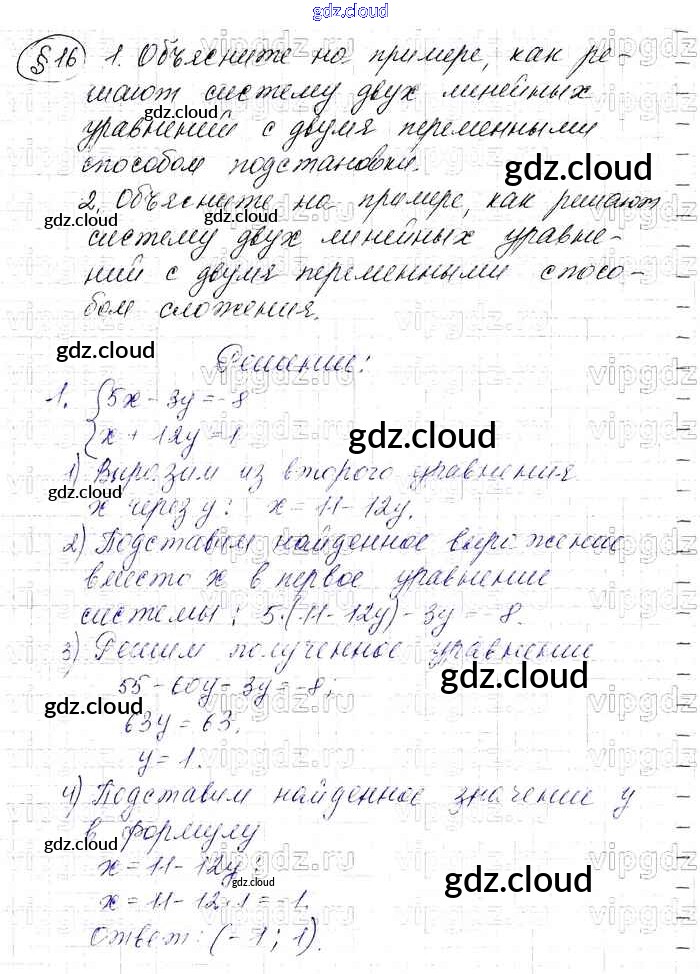 gdz.cloud
§ 16 1. Объясните на примере, как ре-
шают систему двух линейных
gdz.cloud
уравнений с двумя переменными
способом подстановки.
gdz.cloud
2. Объясните на примере, как решают
gdz.cloud gdz.cloud
систему двух линейных уравне-
ний с двумя переменными спосо-
бом сложения.
gdz.cloud
Решение:
1. {5x - 3y = -8
{x + 12y = 11
gdz.cloud
1) Выразим из второго уравнения
gdz.cloud
x через y: x = 11 - 12y.
2) Подставим найденное выражение
вместо x в первое уравнение
системы: 5·(11 - 12y) - 3y = -8.
gdz.cloud
3) Решим полученное уравнение
gdz.cloud
55 - 60y - 3y = -8;
gdz.cloud
63y = 63;
y = 1.
4) Подставим найденное значение y
в формулу
gdz.cloud
x = 11 - 12y;
gdz.cloud
gdz.cloud
x = 11 - 12·1 = -1.
Ответ: (-1; 1).
vipgdz.ru